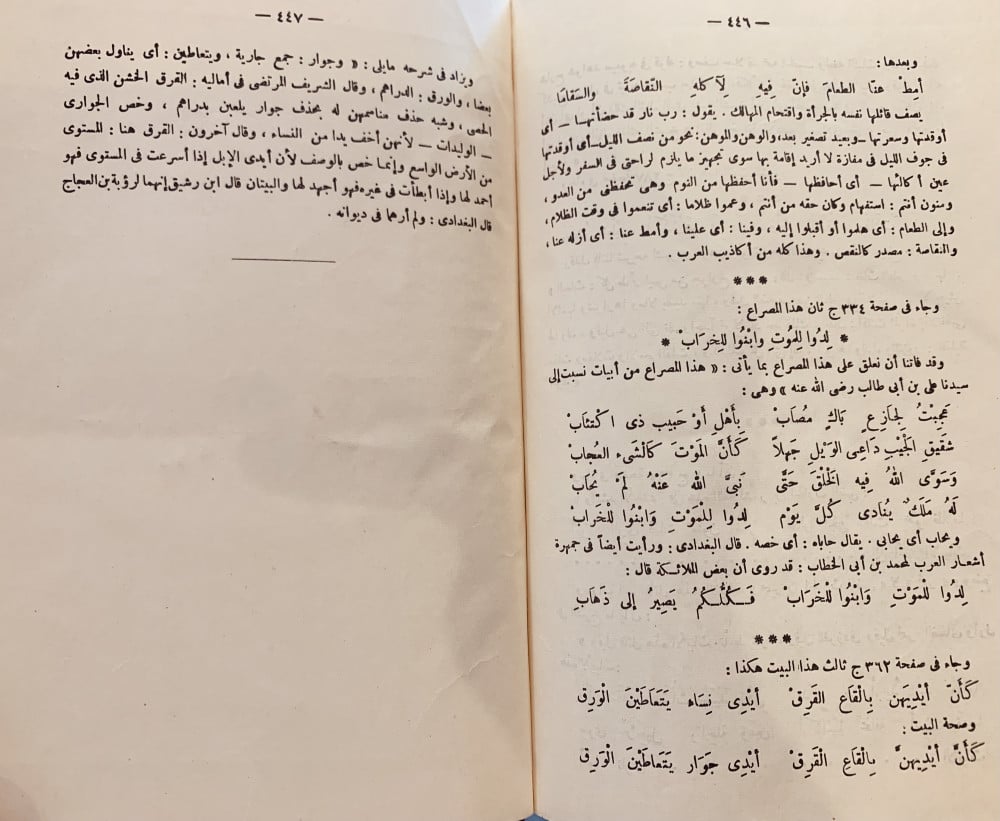 — ٤٤٦ —
وبعدها :
أمِطْ عنا الطعامَ فإنّ فِيهِ لِآكلهِ النّقاصَةَ والسّقامَا
يصف قائلها نفسه بالجرأة واقتحام المهالك . يقول : رب نار قد حضأتها — أى
أوقدتها وسعرتها — وبعيد تصغير بعد، والوهن والموهن: نحو من نصف الليل — أى أوقدتها
فى جوف الليل فى مفازة لا أريد إقامة بها سوى تجهيز ما يلزم لراحتى فى السفر ولأجل
عين أكالئها — أى أحافظها — فأنا أحفظها من النوم وهى تحفظنى من العدو ،
ومنون أنتم : استفهام وكان حقه من أنتم ، وعموا ظلاما : أى تنعموا فى وقت الظلام ،
وإلى الطعام : أى هلموا أو أقبلوا إليه ، وفينا : أى علينا ، وأمط عنا : أى أزله عنا ،
والنقاصة : مصدر كالنقص . وهذا كله من أكاذيب العرب .
***
وجاء فى صفحة ٣٣٤ ج ثان هذا المصراع :
* لِدُوا لِلمُوتِ وابْنُوا لِلخِرَابْ *
وقد فاتنا أن نعلق على هذا المصراع بما يأتى : « هذا المصراع من أبيات نسبت إلى
سيدنا على بن أبى طالب رضى الله عنه » وهى :
عَجِبْتُ لِجَازِعٍ بَاكٍ مُصَابْ بِأَهْلٍ أَوْ حَبِيب ذى اكْتئَابْ
شَقِيقِ الجَيْبِ دَاعِى الوَيْلِ جَهْلاً كَأَنَّ المَوْتَ كَالشَّىء العُجابْ
وَسَوَّى اللهُ فِيه الْخَلْقَ حَتَّى نَبىَّ الله عَنْهُ لَمْ يُحَابْ
لَهُ مَلَكٌ يُنَادى كُلَّ يَوْم لِدُوا لِلْمَوْتِ وَابْنُوا لِلْخَرَابْ
ويحاب أى يحابى . يقال حاباه : أى خصه . قال البغدادى : ورأيت أيضاً فى جمهرة
أشعار العرب لمحمد بن أبى الخطاب : قد روى أن بعض الملائكة قال :
لِدُوا لِلْمَوْتِ وَابْنُوا لِلْخَرَابْ فَكُلُّكُمُ يَصِيرُ إلى ذَهَابِ
***
وجاء فى صفحة ٣٦٢ ج ثالث هذا البيت هكذا :
كَأَنّ أَيْدِيَهَن بِالْقَاع القَرِقْ أيْدِى نِسَاء يَتَعَاطَيْنَ الْوَرِق
وصحة البيت :
كَأَنَّ أَيْدِيهنَّ بِالْقَاعِ الْقَرِقْ أَيْدِى جَوَار يَتَعَاطَيْنَ الْوَرِق
— ٤٤٧ —
ويزاد فى شرحه مايلى : « وجوار : جمع جارية ، ويتعاطين : أى يناول بعضهن
بعضا ، والورق : الدراهم ، وقال الشريف المرتضى فى أماليه : القرق الخشن الذى فيه
الحصى ، وشبه حذف مناسمهن له بحذف جوار يلعبن بدراهم ، وخص الجوارى
— الوليدات — لأنهن أخف يدا من النساء ، وقال آخرون : القرق هنا : المستوى
من الأرض الواسع وإنما خص بالوصف لأن أيدى الإبل إذا أسرعت فى المستوى فهو
أحمد لها وإذا أبطأت فى غيره فهو أجهد لها والبيتان قال ابن رشيق إنهما لرؤبة بن العجاج
قال البغدادى : ولم أرهما فى ديوانه .